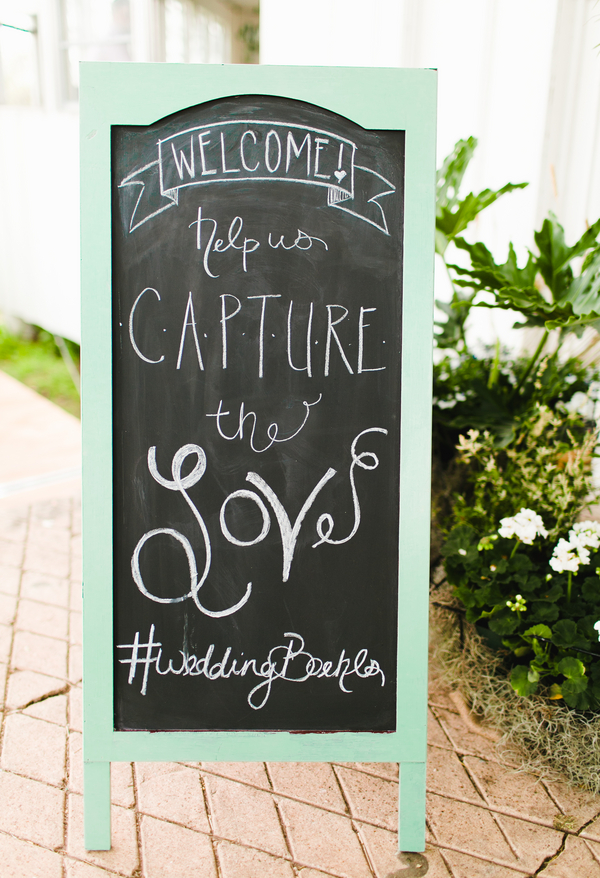 WELCOME!
help us
C.A.P.T.U.R.E.
the
Love
#weddingBoehls